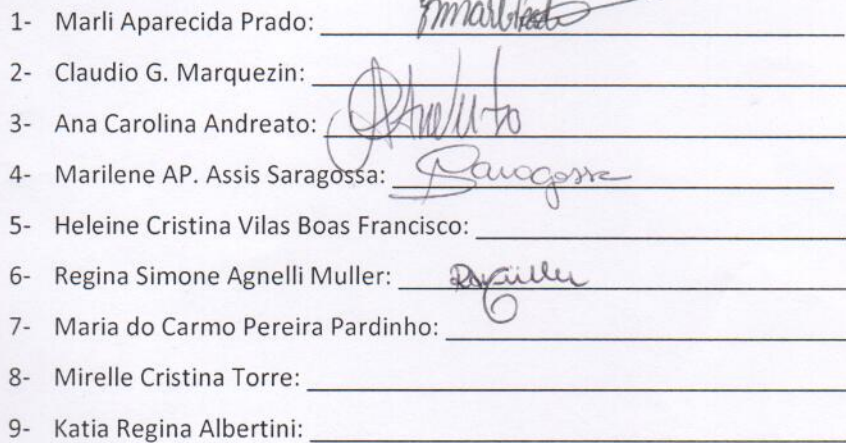 1- Marli Aparecida Prado:
2- Claudio G. Marquezin:
3- Ana Carolina Andreato:
4- Marilene AP. Assis Saragossa: Saragossa
5- Heleine Cristina Vilas Boas Francisco:
6- Regina Simone Agnelli Muller:
7- Maria do Carmo Pereira Pardinho:
8- Mirelle Cristina Torre:
9- Katia Regina Albertini: